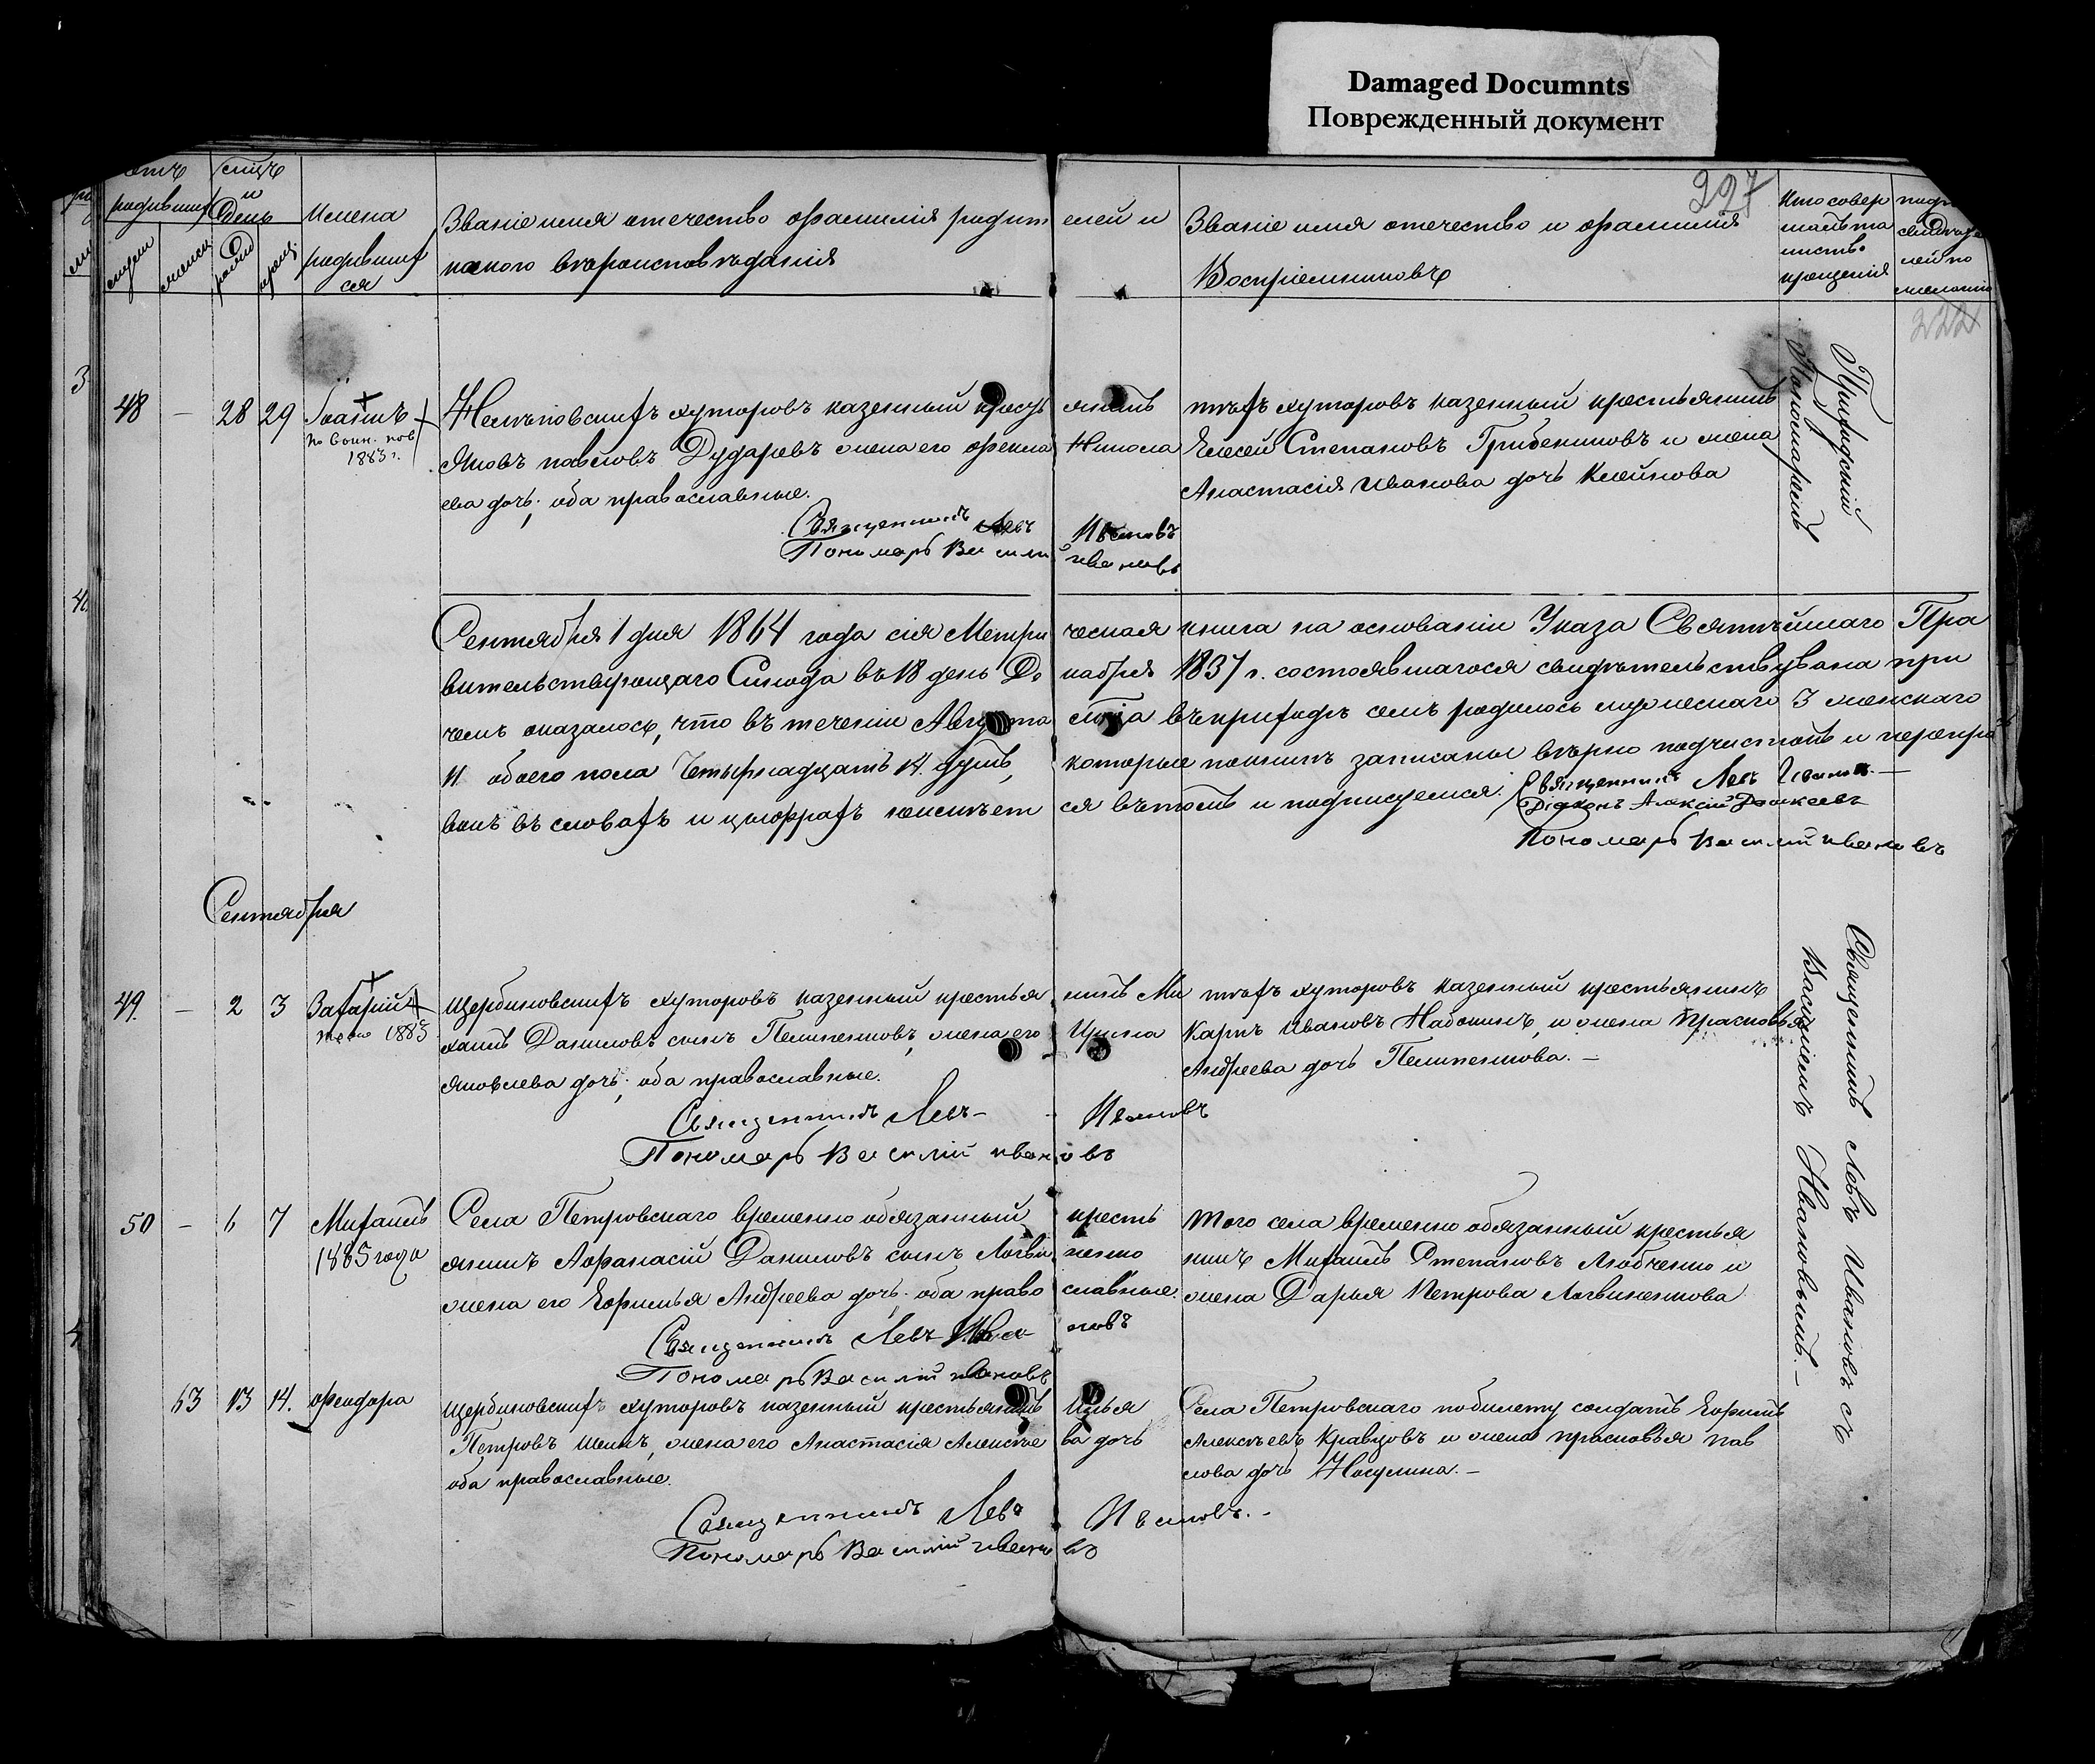 Damaged Documnts
Поврежденный документ
227
222
родивших
день
Имена
родившиф
ся
Званіе имя отечество фамилія родит елей и
какого вѣроисповѣданія
Званіе имя отечество и фамилія
Воспріемниковъ
Кто совер
шалъ та
инство
крещенія
48 — 28 29 Іоаннъ
1883 г.
хуторовъ казенный кресть янинъ
Яковъ павловъ Дударевъ жена его Никола
ева дочь; оба православные.
тѣхъ хуторовъ казенный крестьянинъ
Елисей Степановъ Грибениковъ и жена
Анастасія Иванова дочь Клейнова
Священникъ Левъ Ивановъ
Пономарь Василій ивановъ
Приходскій
Сентября 1 дня 1864 года сія Метри ческая книга на основаніи Указа Святѣйшаго Пра
вительствующаго Синода въ 18 день Де кабря 1837 г. состоявшагося свидѣтельствована при
чемъ оказалось, что въ теченіи Августа мѣсяца въ приходѣ семъ родилось мужескаго 3 женскаго
11 обоего пола Четырнадцать 14. душъ, которые записаны вѣрно подчистокъ и перепра
вокъ въ словахъ и цыфрахъ неимѣет ся въ томъ и подписуемся. Священникъ Левъ Ивановъ.—
Діаконъ Алексій
Пономарь Василій ивановъ
Сентября
49. — 2 3 Захарій
1883
Щербиновскихъ хуторовъ казенный крестья нинъ Ми
хаилъ Даниловъ сынъ Пелипенковъ, жена его Ирина
Яковлева дочь; оба православные.
тѣхъ хуторовъ казенный крестьянинъ
Карпъ Ивановъ Набокинъ, и жена Прасковья
Андреева дочь Пелипенкова.—
Священникъ Левъ Ивановъ
Пономарь Василій ивановъ
Священникъ Левъ Ивановъ съ
Ивановымъ.—
50 — 6 7 Михаилъ
1885 года
Села Петровскаго временно обязанный кресть
янинъ Афанасій Даниловъ сынъ Логви ненко
жена его Ефимья Андреева дочь; оба право славные.
того села временно обязанный крестья
нинъ Михаилъ Степановъ Любченко и
жена Дарья Петрова Логвиненкова
Священникъ Левъ Ивановъ
Пономарь Василій ивановъ
63 13 14. Феодора
Щербиновскихъ хуторовъ казенный крестьянинъ Илья
Петровъ жена его Анастасія Алексѣе ва дочь
оба православные.
Села Петровскаго по билету солдатъ Ефимъ
Алексѣевъ Кравцовъ и жена прасковья пав
лова дочь
Священникъ Левъ Ивановъ.—
Пономарь Василій ивановъ